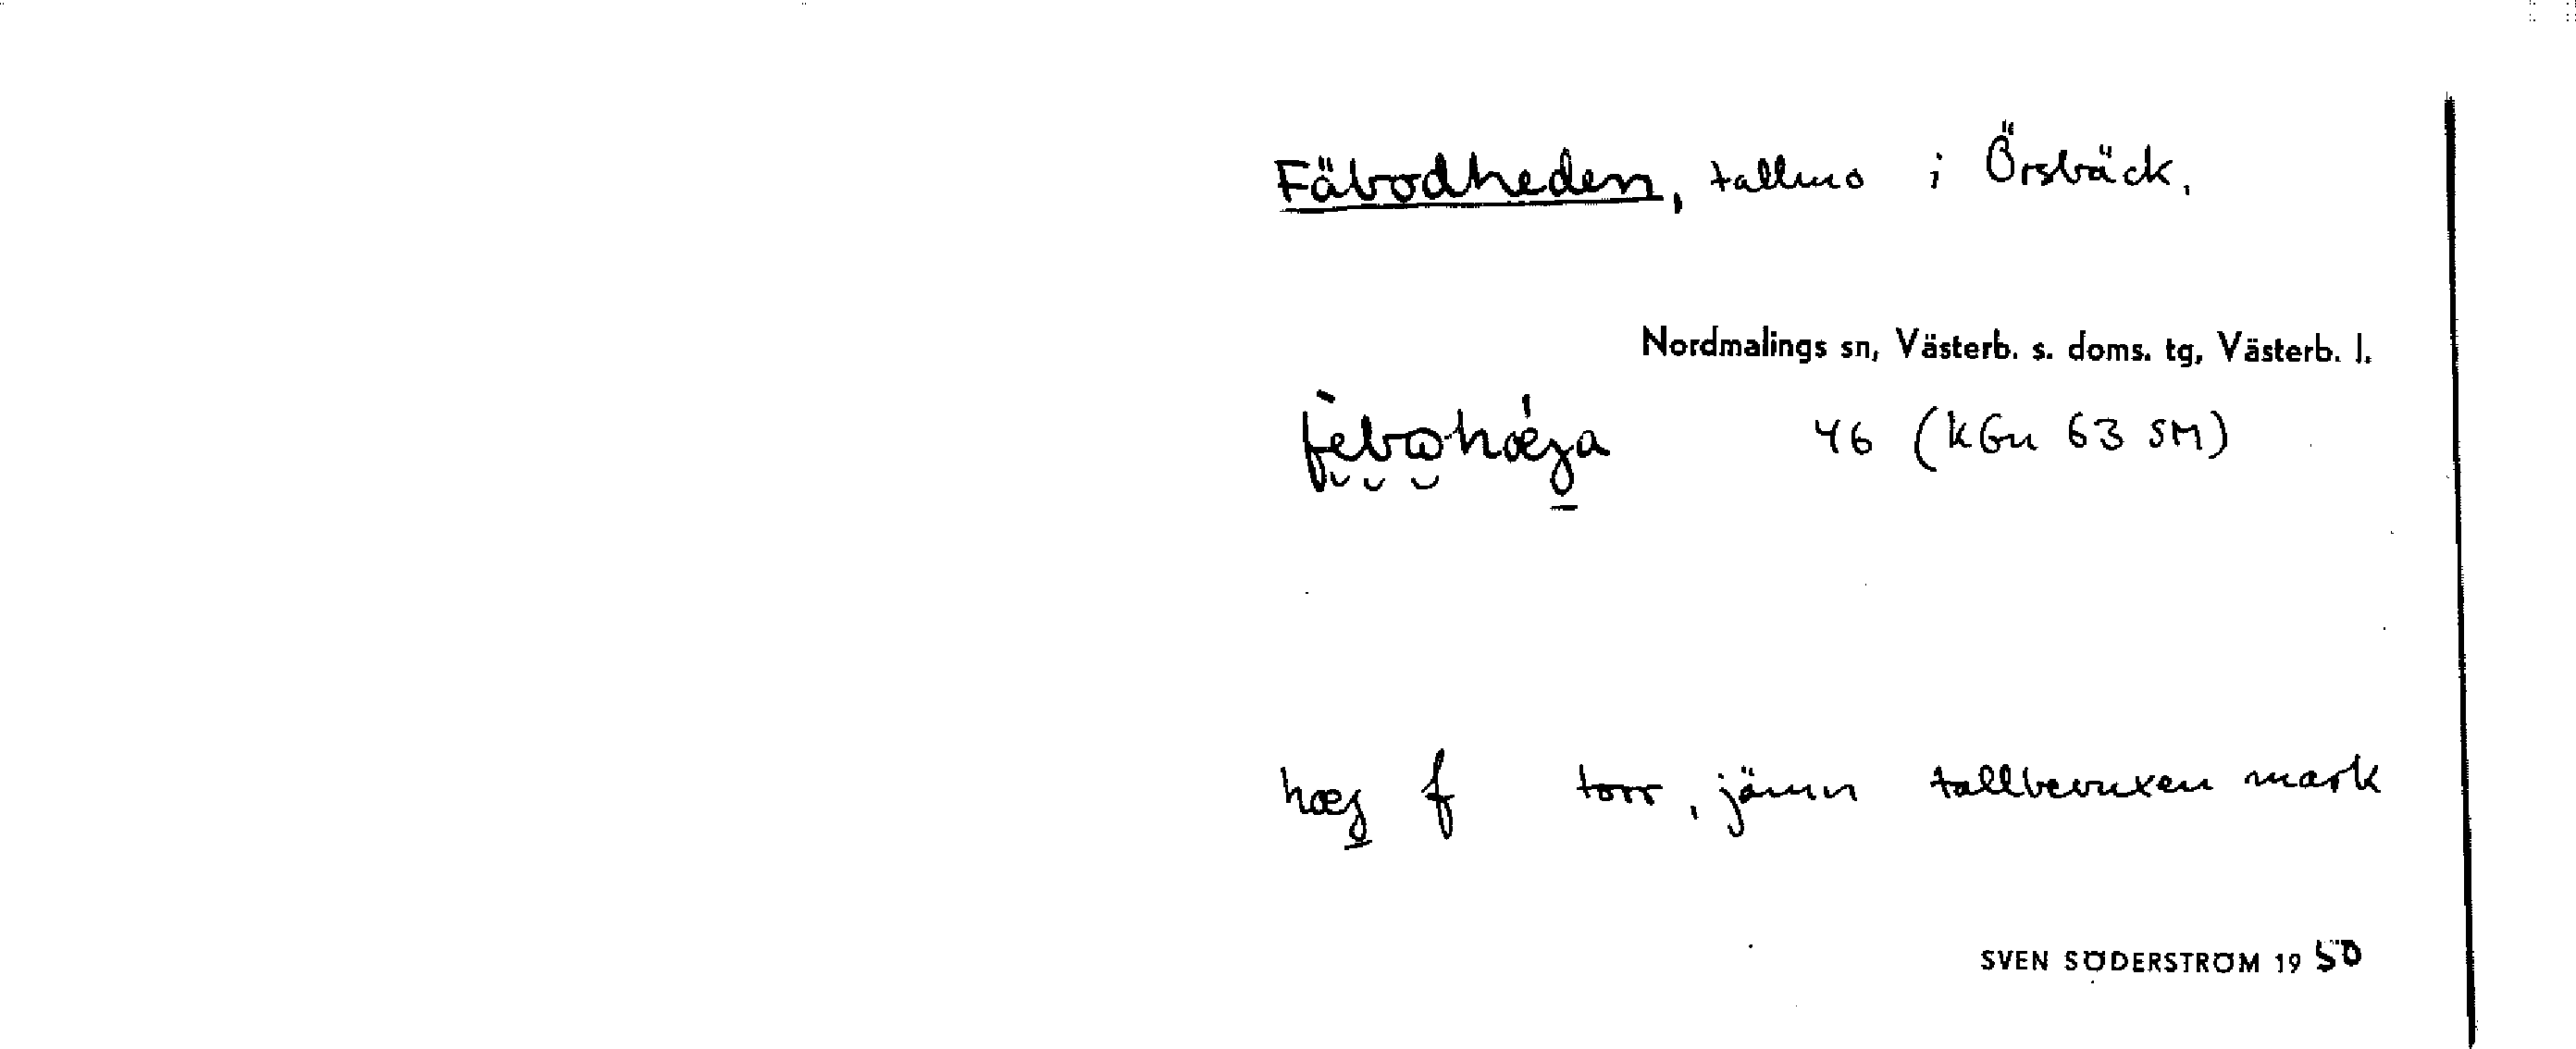 Fäbodheden, tallmo i Örsbäck.
Nordmalings sn, Västerb. s. doms. tg, Västerb. l.
46 (KGu 63 SM)
f torr, jämn tallbevuxen mark
SVEN SÖDERSTRÖM 1950